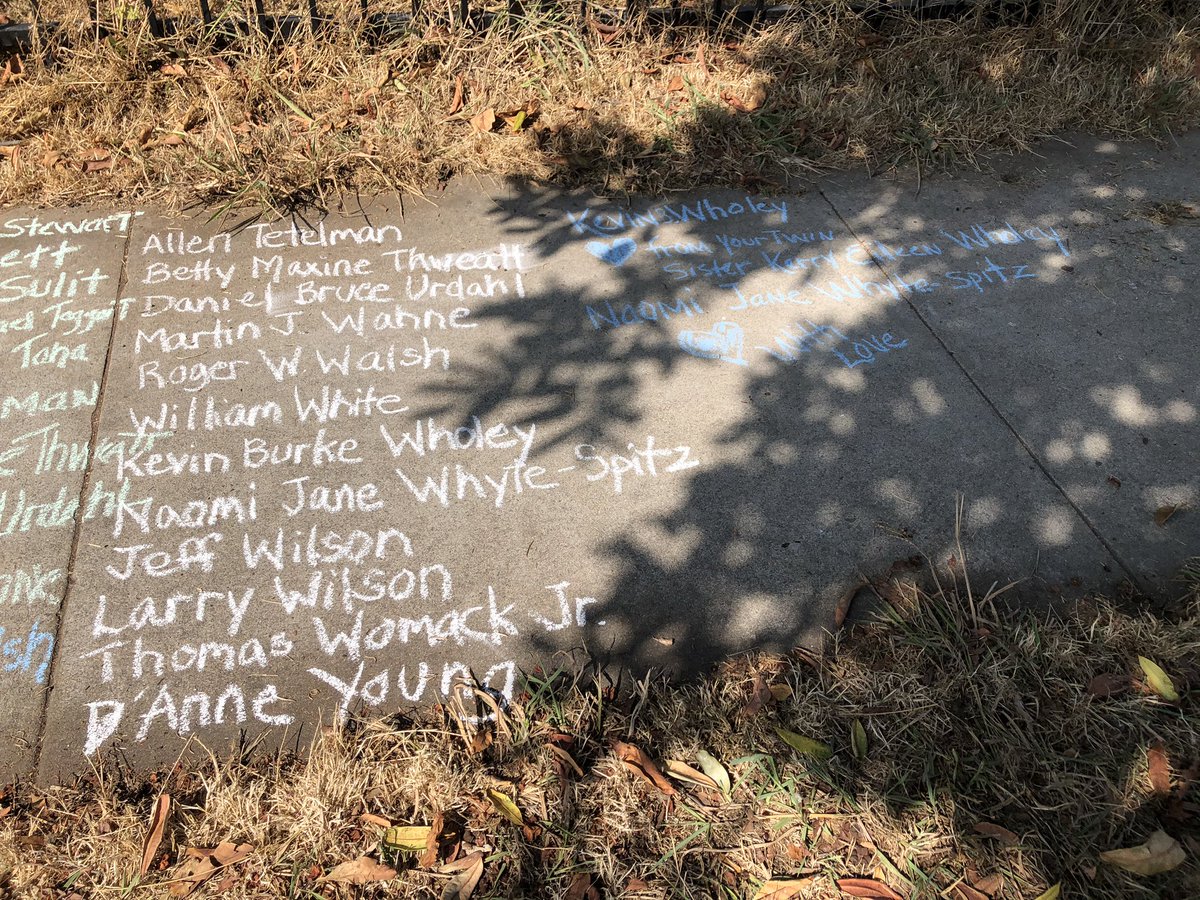 Stewart
ett
Sulit
Taggart
Taha
man
Thweatt
Urdahl
Allen Tetelman
Betty Maxine Thweatt
Daniel Bruce Urdahl
Martin J. Wahne
Roger W Walsh
William White
Kevin Burke Wholey
Naomi Jane Whyte-Spitz
Jeff Wilson
Larry Wilson
Thomas Womack Jr.
D'Anne Young
Kevin Wholey
from your Twin
Sister Kerry Eileen Wholey
Naomi Jane Whyte-Spitz
With Love